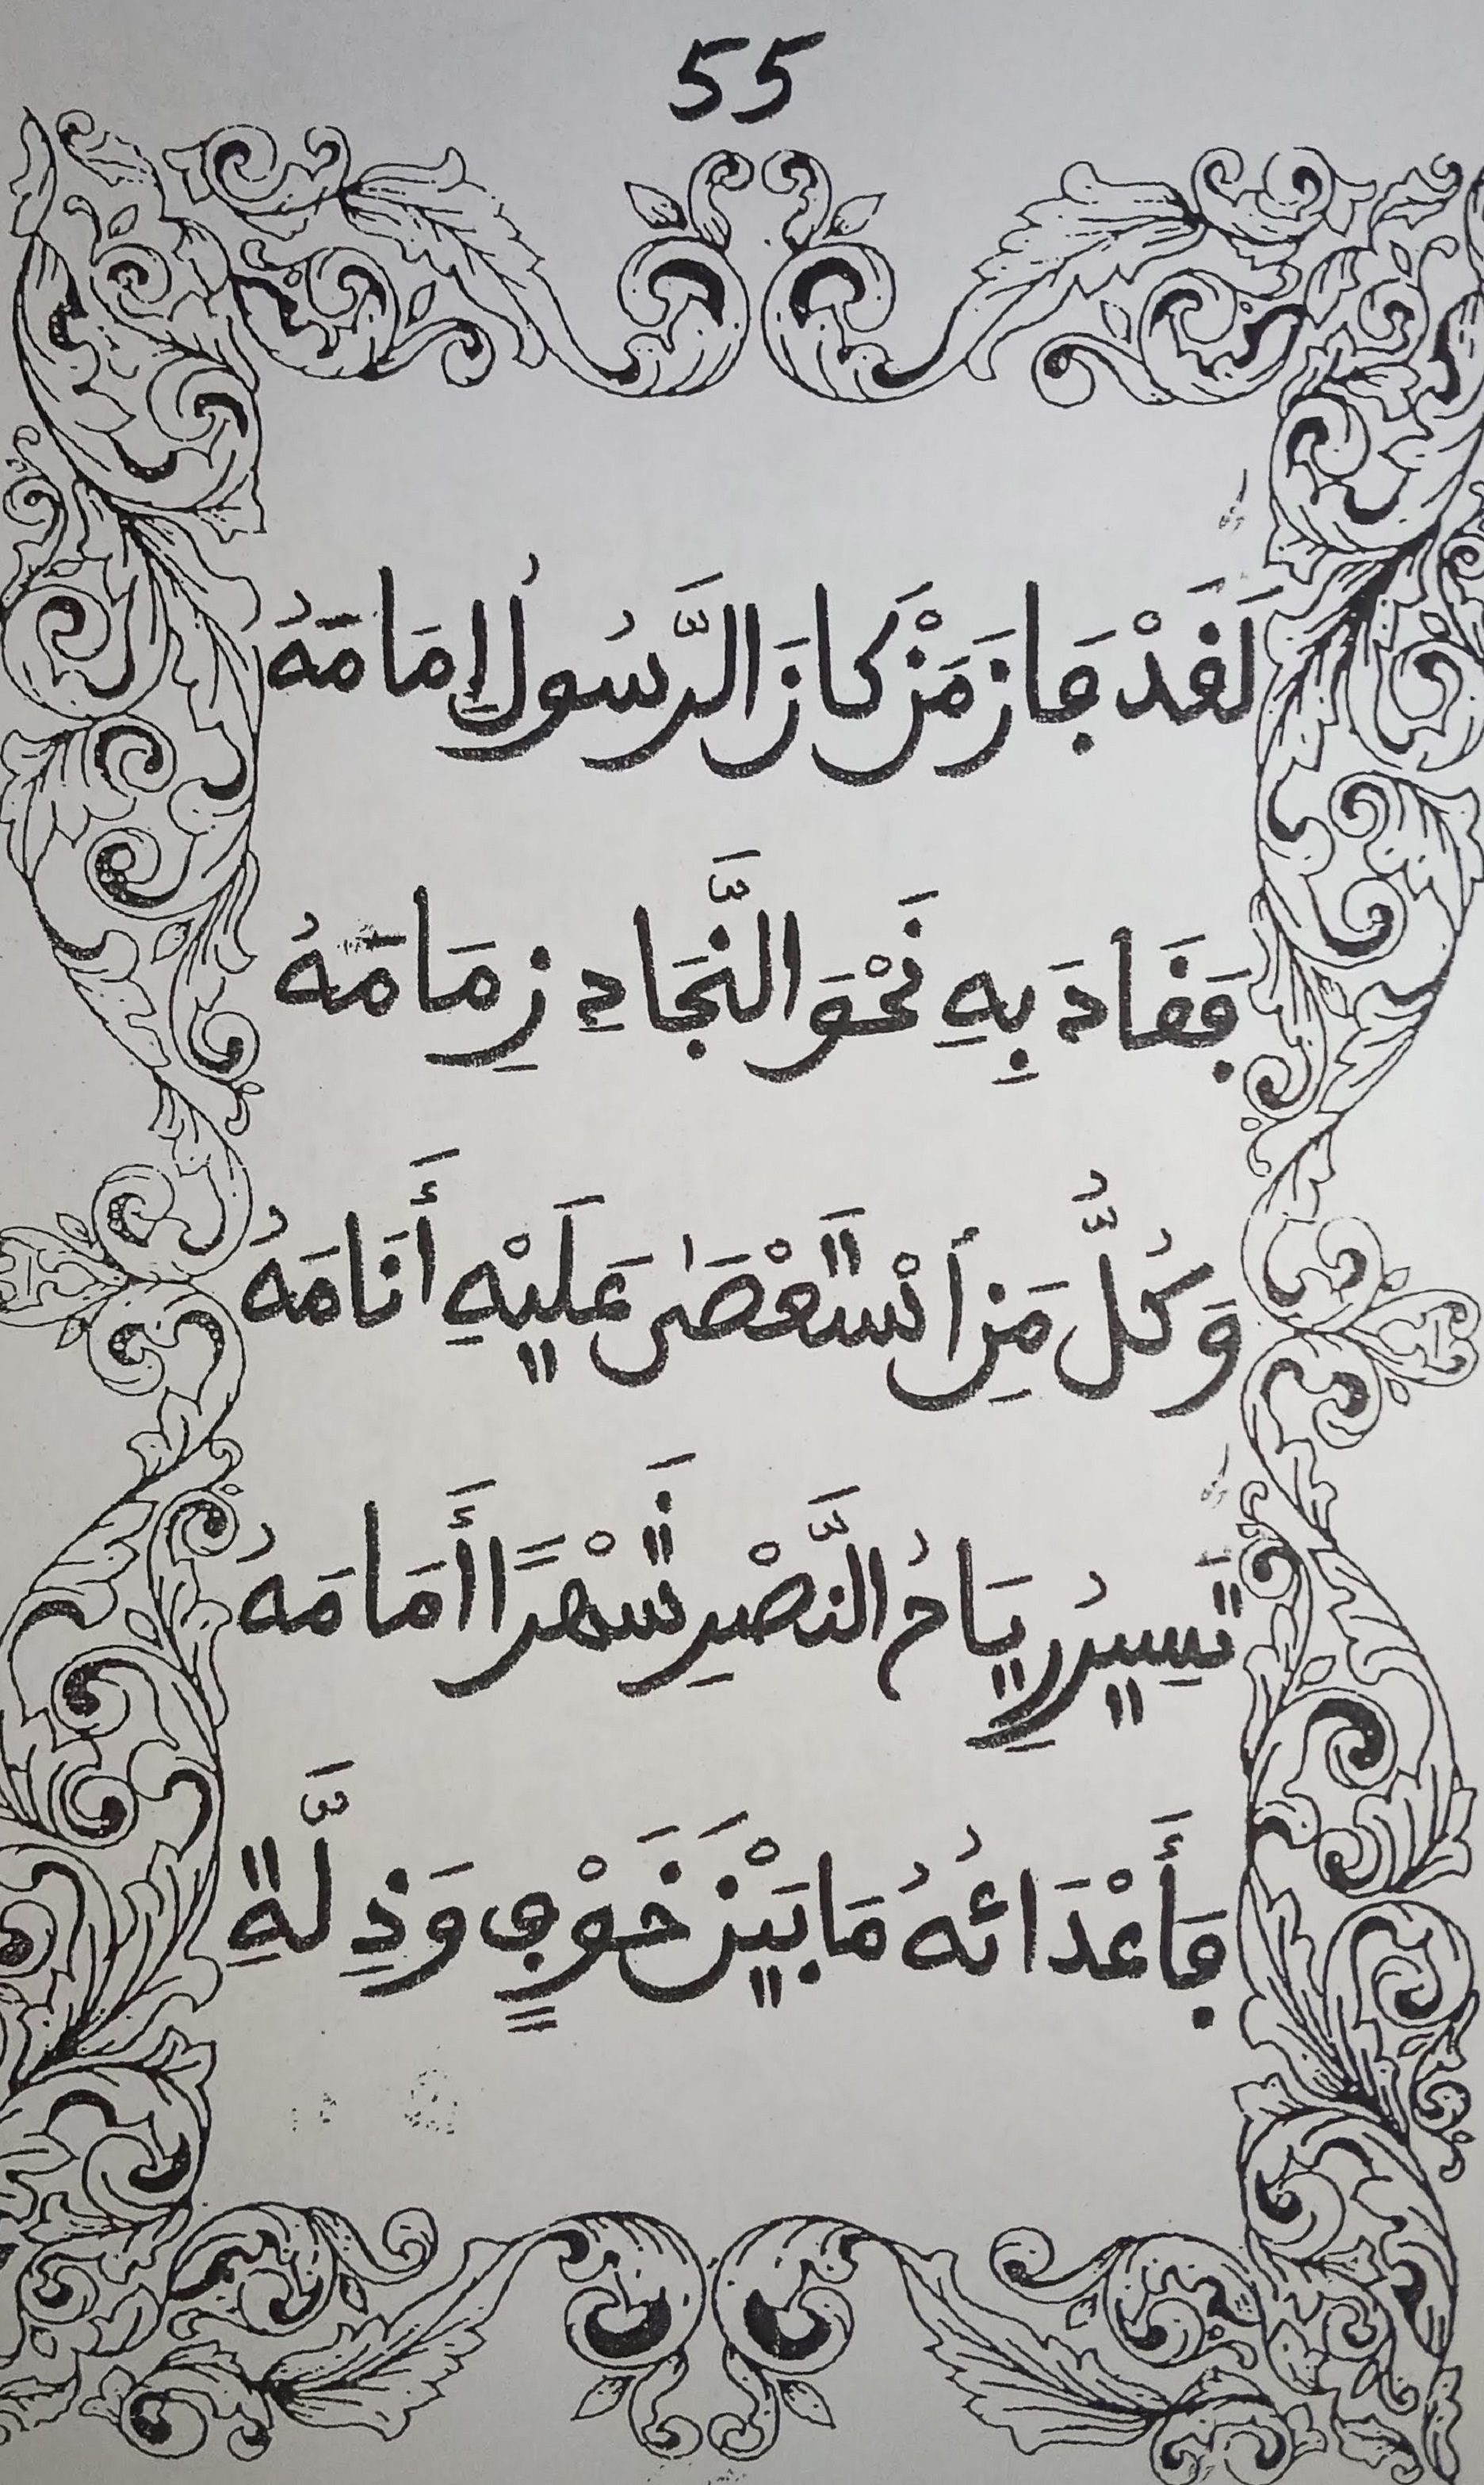 55
لَقَدْ فَازَ مَنْ كَانَ الرَّسُولُ إِمَامَهُ
فَقَادَ بِهِ نَحْوَ النَّجَادِ زِمَامَهُ
وَكُلُّ مَنِ اسْتَعْصَى عَلَيْهِ أَنَامَهُ
تَسِيرُ رِيَاحُ النَّصْرِ شَهْرًا أَمَامَهُ
فَأَعْدَائُهُ مَا بَيْنَ خَوْفٍ وَذِلَّةِ